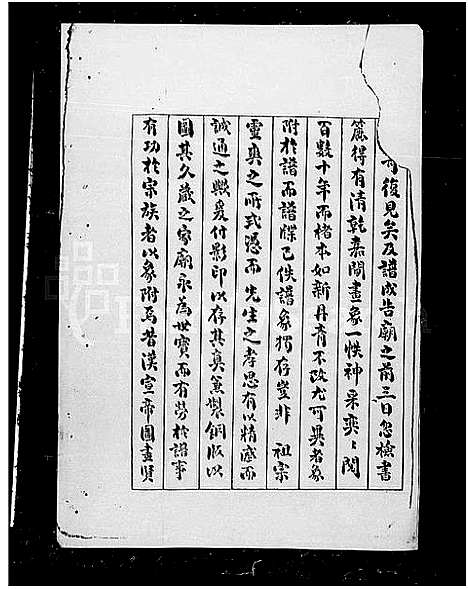 可復見矣及譜成告廟之前三日忽檢書
簏得有清乾嘉間畫象一帙神采奕〻閱
百數十年而楮本如新丹青不改尤可異者象
附於譜而譜牒已佚譜象獨存豈非 祖宗
靈爽之所式憑而 先生之孝思有以精感而
誠通之歟爰付影印以存其真兼製銅版以
圖其久藏之家廟永為世寶而有勞於譜事
有功於宗族者以象附焉昔漢宣帝圖畫賢